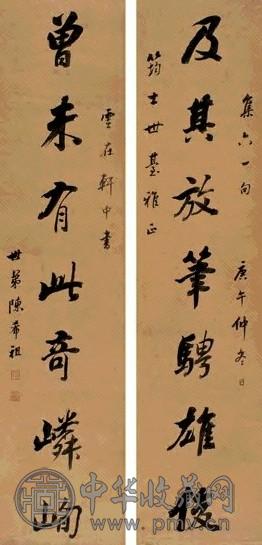 集六一句 庚午仲冬日
及其放筆騁雄俊
筠士世臺雅正
雲在軒中書
曾未有此奇嶙峋
世弟陳希祖
中华收藏网